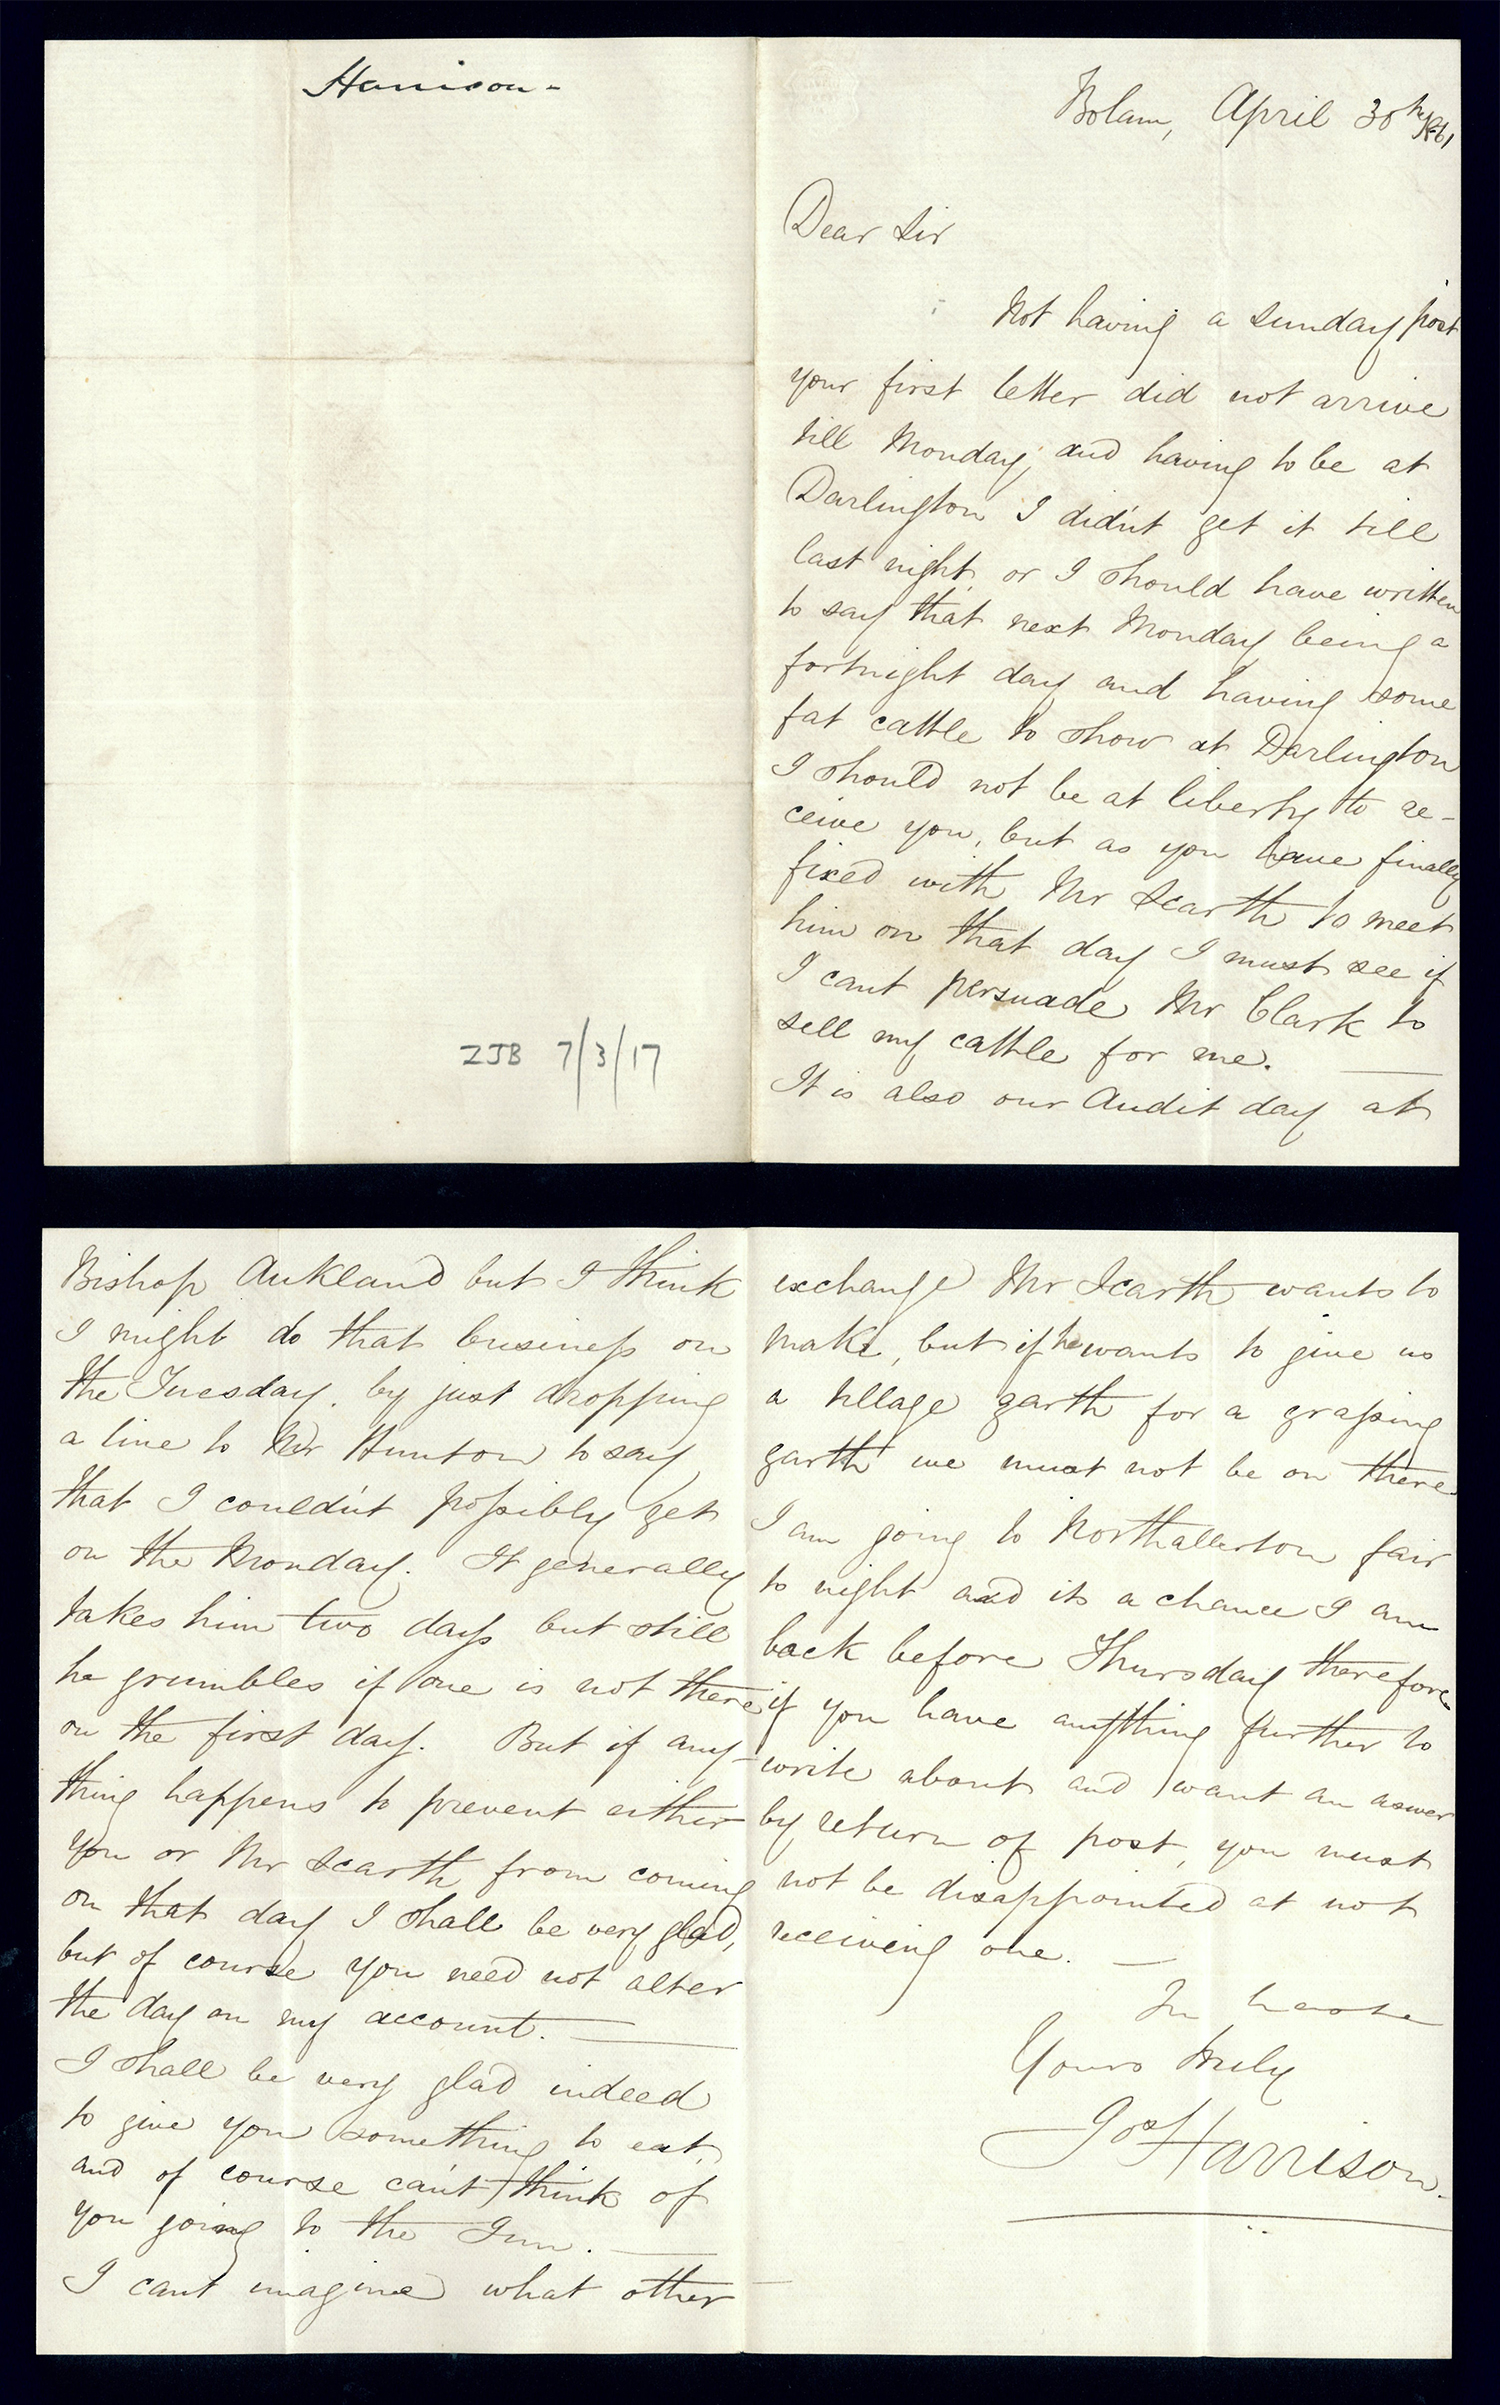 Harrison -
ZJB 7/3/17
Bolam, April 30th 1861
Dear Sir
Not having a Sunday post
your first letter did not arrive
till Monday, and having to be at
Darlington I didn't get it till
last night, or I should have written
to say that next Monday being a
fortnight day and having some
fat cattle to show at Darlington
I should not be at liberty to re-
ceive you, but as you have finally
fixed with Mr Scarth to meet
him on that day I must see if
I cant persuade Mr Clark to
sell my cattle for me.
It is also our Audit day at
Bishop Aukland but I think
I might do that business on
the Tuesday. by just dropping
a line to Mr Hunton to say
that I could'nt possibly get
on the Monday. It generally
takes him two days but still
he grumbles if one is not there
on the first day. But if any-
thing happens to prevent either
you or Mr Scarth from coming
on that day I shall be very glad,
but of course you need not alter
the day on my account.
I shall be very glad indeed
to give you something to eat,
and of course can't think of
you going to the Inn.
I can't imagine what other
exchange Mr Scarth wants to
make, but if he wants to give us
a tillage garth for a grassing
garth we must not be on there
I am going to Northallerton fair
to night and its a chance I am
back before Thursday therefore
if you have anything further to
write about and want an aswer
by return of post, you must
not be disappointed at not
receiving one. —
In haste
Yours truly
Jos Harrison.